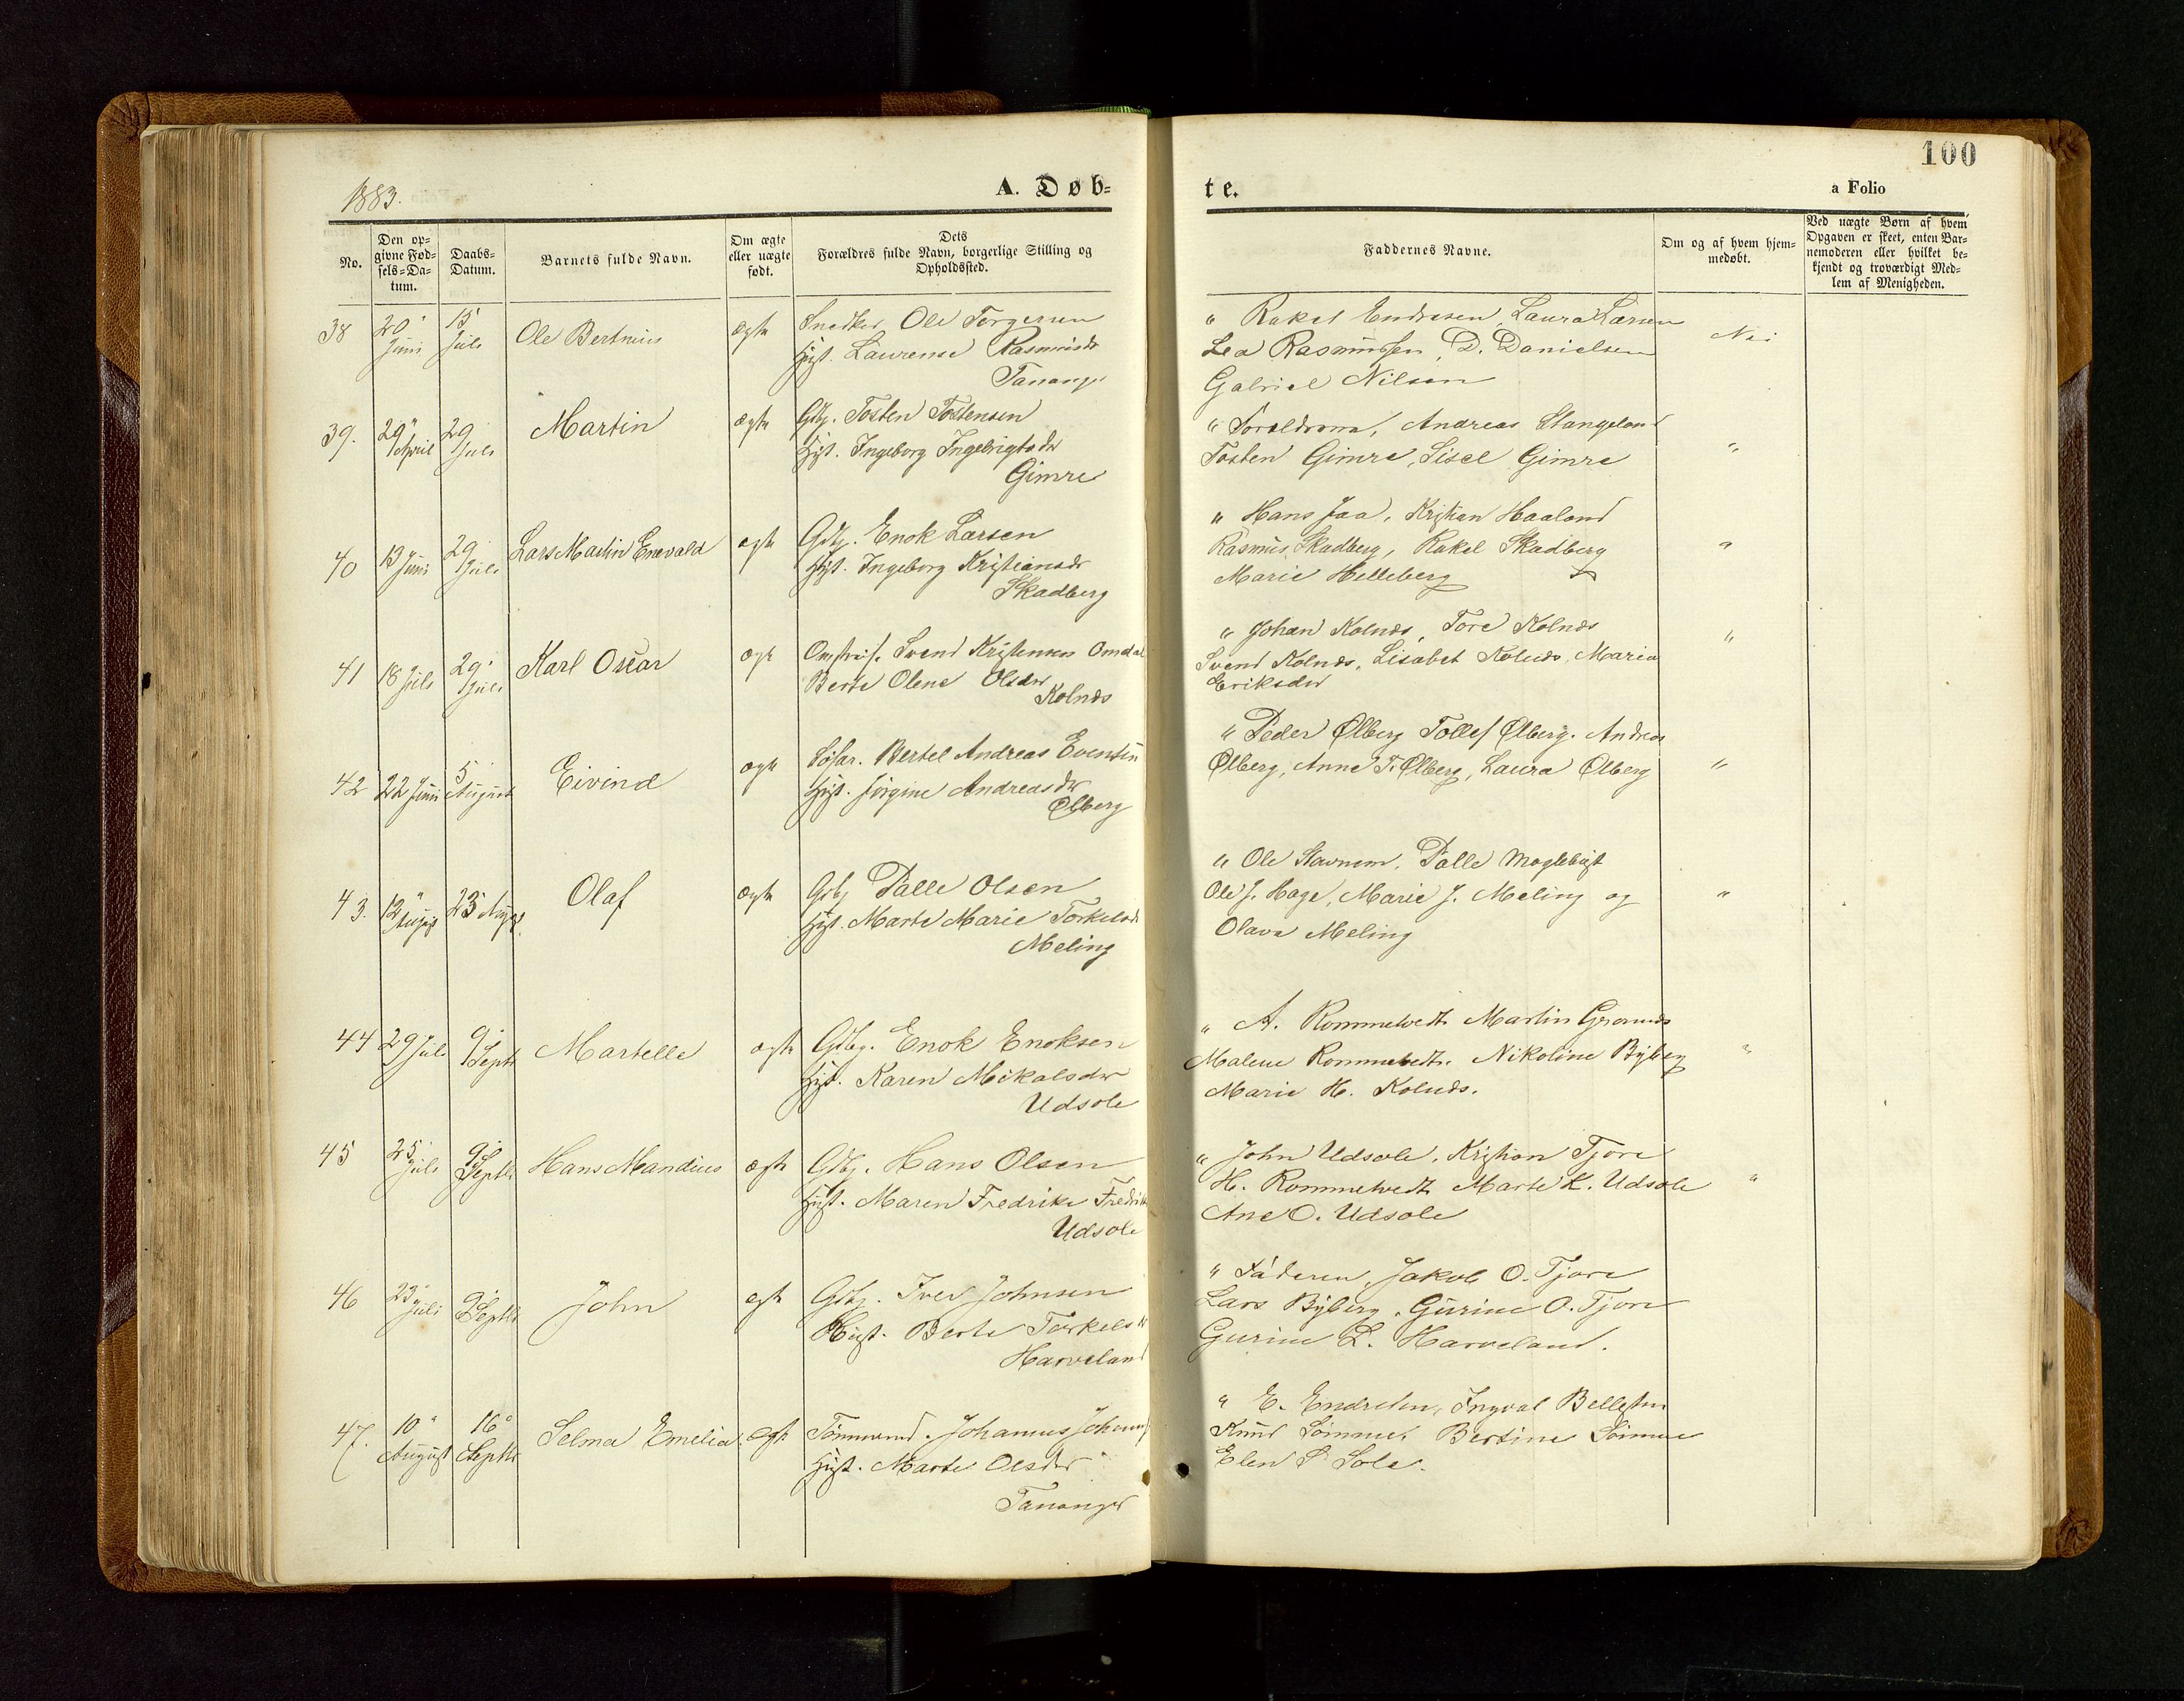 100
1883.
A. Døb=
te.
a Folio
No.
Den op=
givne Fød=
sels=Da=
tum.
Daabs=
Datum.
Barnets fulde Navn.
Om ægte
eller uægte
født.
Dets
Forældres fulde Navn, borgerlige Stilling og
Opholdssted.
Faddernes Navne.
Om og af hvem hjem=
medøbt.
Ved uægte Børn af hvem
Opgaven er skeet, enten Bar=
nemoderen eller hvilket be=
kjendt og troværdigt Med=
lem af Menigheden.
38 20 Juni 15 Juli Ole Bertnius ægte Snedker Ole Torgersen
Hust. Laurense Rasmusdr
Tananger
" Rakel Endresen, Laura Larsen
Lea Rasmussen, D. Danielsen
Gabriel Nilsen
Nei
39. 29 April 29 Juli Martin ægte Gdbr. Tosten Tostensen
Hust. Ingeborg Ingebrigtsdr
Gimre
" Forældrene, Andreas Stangeland
Tosten Gimre, Sisel Gimre
"
40 13 Juni 29 Juli Lars Martin Enevald ægte Gdbr. Enok Larsen
Hust. Ingeborg Kristiansdr
Skadberg
" Hans Jaa, Kristian Haaland
Rasmus Skadberg, Rakel Skadberg
Marie Helleberg
"
41 18 Juli 29 Juli Karl Oscar ægte Svend Kristensen Omdal
Berte Olene Olsdr
Kolnes
" Johan Kolnes, Tore Kolnes
Svend Kolnes, Lisabet Kolnes, Maria
Eriksdr
"
42 22 Juni 5 August Eivind ægte Bertel Andreas Eventin
Hust. Jørgine Andreasdr
Ølberg
" Peder Ølberg Tollef Ølberg. Andreas
Ølberg, Anne T. Ølberg, Laura Ølberg
"
43. 12 August 23 August Olaf ægte Gdbr Palle Olsen
Hust. Marte Marie Torkelsdr
Meling
" Ole Stavnem, Palle Moglebust
Ole J. Hage, Marie J. Meling og
Olava Meling
"
44 29 Juli 9 Septb Martelle ægte Gdbr. Enok Enoksen
Hust. Karen Mikalsdr
Udsole
" A. Rommetvedt Martin Grannes
Malene Rommetvedt. Nikoline Byberg
Marie H. Kolnes.
"
45 25 Juli 9 Septb Hans Mandius ægte Gdbr. Hans Olsen
Hust. Maren Fredrike Fredrik
Udsole
" John Udsole, Kristian Tjore
H. Rommetvedt Marte K. Udsole
Ane O. Udsole
"
46 23 Juli 9 Septb John ægte Gdbr. Iver Johnsen
Hust. Berte Torkelsdr
Harveland
" Faderen, Jakob O. Tjore
Lars Byberg, Gurine O. Tjore
Gurine L. Harveland.
47. 10 August 16 Septbr Selma Emelia ægte Tømmermd. Johannes Johanns
Hust. Marte Olsdr
Tananger
" E. Endresen, Ingval Bellesen
Knud Sømme, Bertine Sømme
Elen S. Sole.